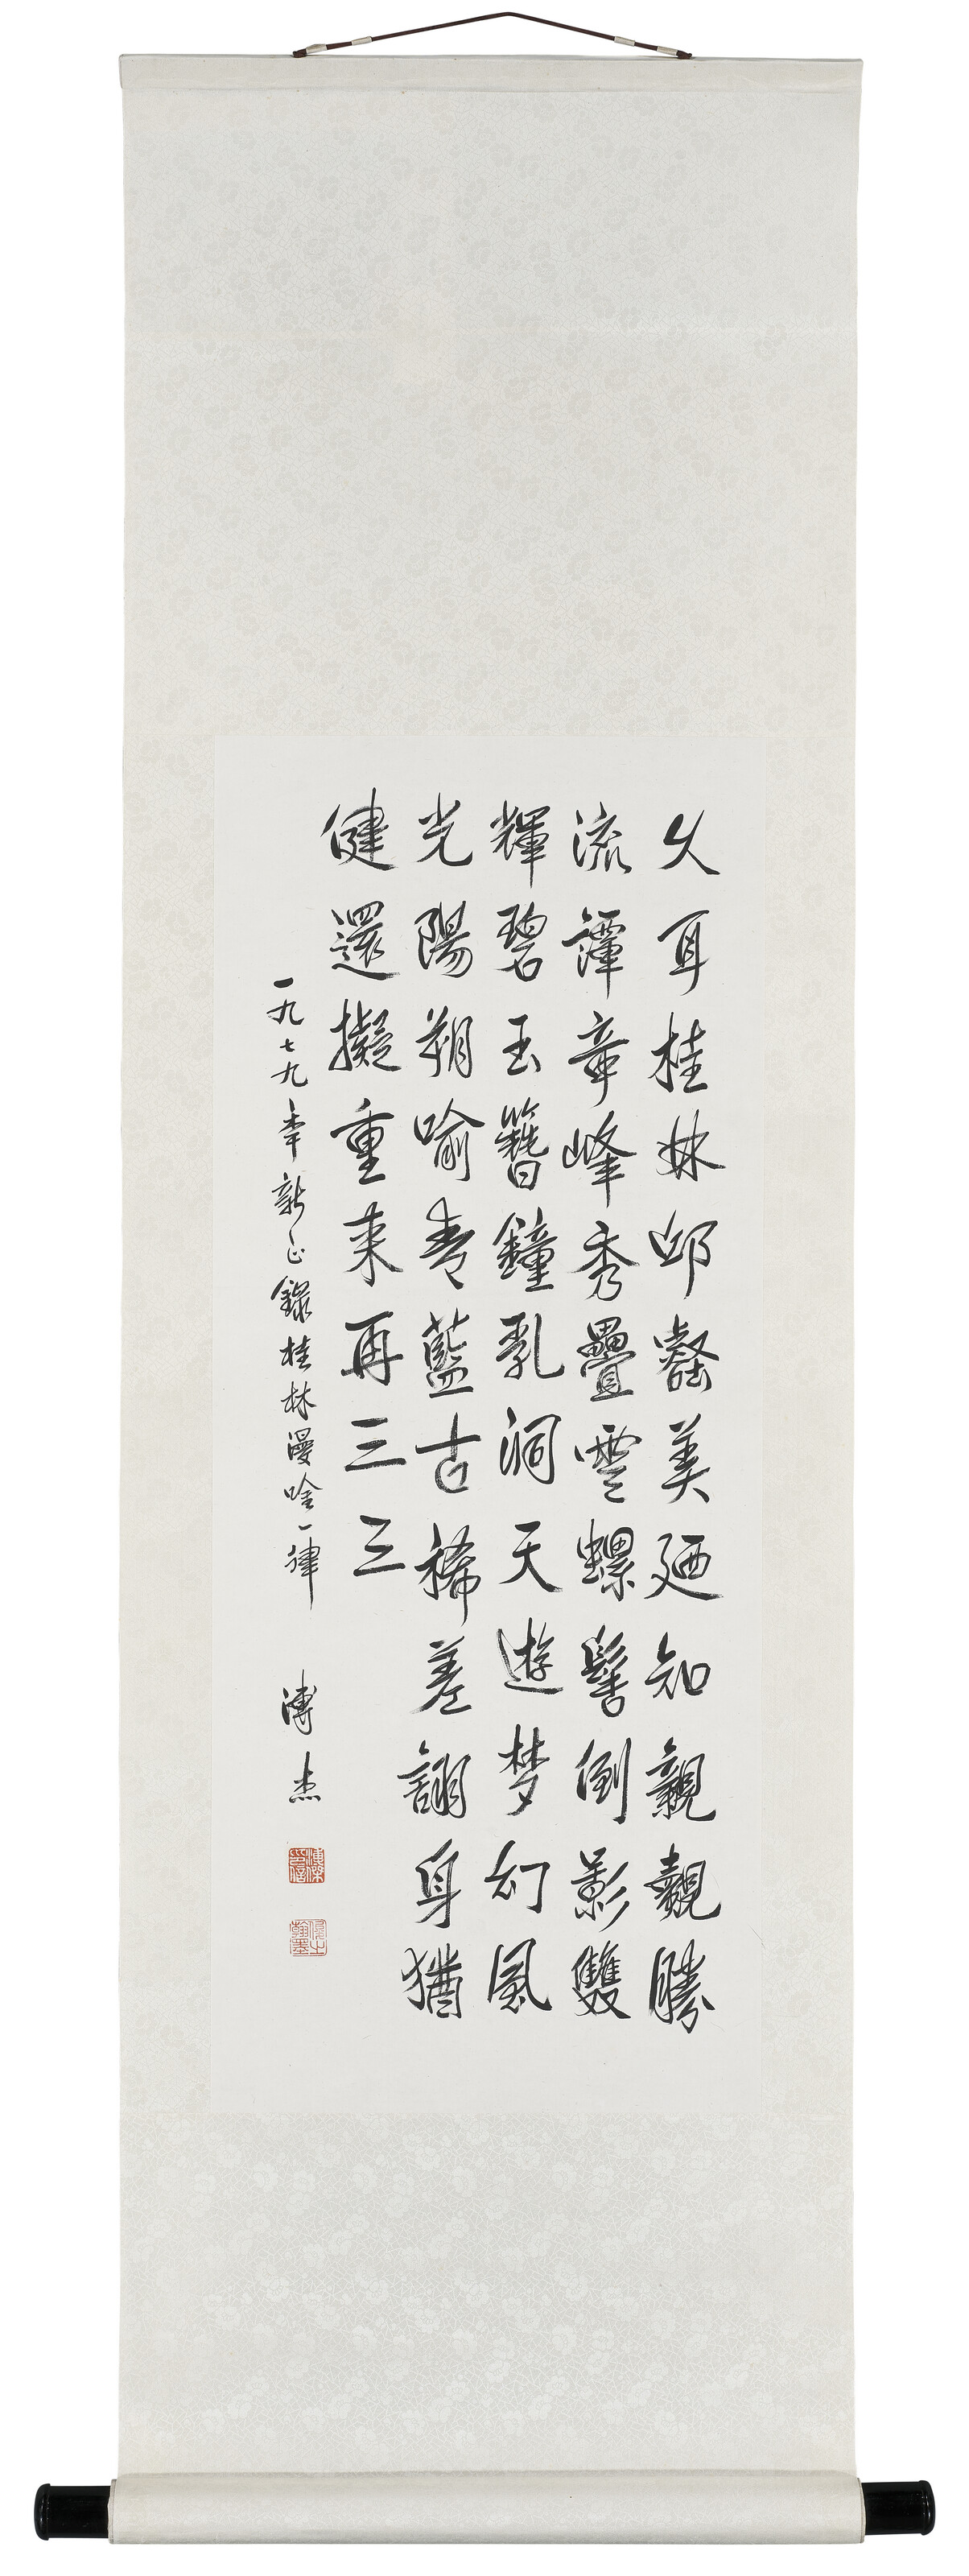 久耳桂林邱壑美廼知親勝
流譚峰秀疊雲螺髻倒影雙
輝碧玉簪鐘乳洞天遊梦幻風
光陽朔喻青藍古稀差詡身猶
健還擬重来再三三
一九七九年新正錄桂林漫吟一律
溥杰
溥傑印信